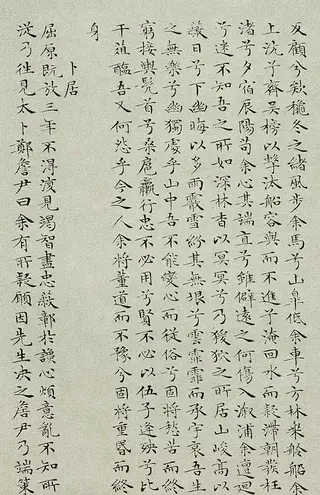 反顧兮欸秋冬之緒風步余馬兮山皋低余車兮方林乘舲船余
上沅兮齊吳榜以擊汰船容與而不進兮淹回水而疑滯朝發枉
渚兮夕宿辰陽苟余心其端直兮雖僻遠之何傷入溆浦余邅迴
兮迷不知吾之所如深林杳以冥冥兮乃猨狖之所居山峻高以
蔽日兮下幽晦以多雨霰雪紛其無垠兮雲霏霏而承宇哀吾生
之無樂兮幽獨處乎山中吾不能變心而從俗兮固將愁苦而終
窮接輿髡首兮桑扈臝行忠不必用兮賢不必以伍子逢殃兮比
干菹醢吾又何怨乎今之人余將董道而不豫兮固將重昏而終
身
卜居
屈原既放三年不得復見竭智盡忠蔽鄣於讒心煩意亂不知所
從乃往見太卜鄭詹尹曰余有所疑願因先生決之詹尹乃端策